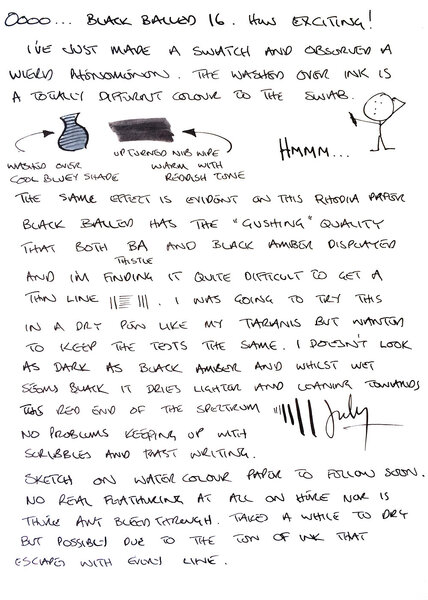 OOOO... BLACK BALLED 16. HOW EXCITING!
I'VE JUST MADE A SWATCH AND OBSERVED A
WIERD PHENOMONON. THE WASHED OVER INK IS
A TOTALLY DIFFERENT COLOUR TO THE SWAB.
WASHED OVER
COOL BLUEY SHADE
UPTURNED NIB WIPE
WARM WITH
REDDISH TONE
HMMM...
THE SAME EFFECT IS EVIDENT ON THIS RHODIA PAPER
BLACK BALLED HAS THE "GUSHING" QUALITY
THAT BOTH BA AND BLACK AMBER DISPLAYED
THISTLE
AND I'M FINDING IT QUITE DIFFICULT TO GET A
THIN LINE. I WAS GOING TO TRY THIS
IN A DRY PEN LIKE MY TARANIS BUT WANTED
TO KEEP THE TESTS THE SAME. I DOESN'T LOOK
AS DARK AS BLACK AMBER AND WHILST WET
SEEMS BLACK IT DRIES LIGHTER AND LEANING TOWARDS
THIS RED END OF THE SPECTRUM
July
NO PROBLEMS KEEPING UP WITH
SCRIBBLES AND FAST WRITING.
SKETCH ON WATER COLOUR PAPER TO FOLLOW SOON.
NO REAL FEATHERING AT ALL ON HERE NOR IS
THERE ANY BLEED THROUGH. TAKES A WHILE TO DRY
BUT POSSIBLY DUE TO THE TON OF INK THAT
ESCAPES WITH EVERY LINE.